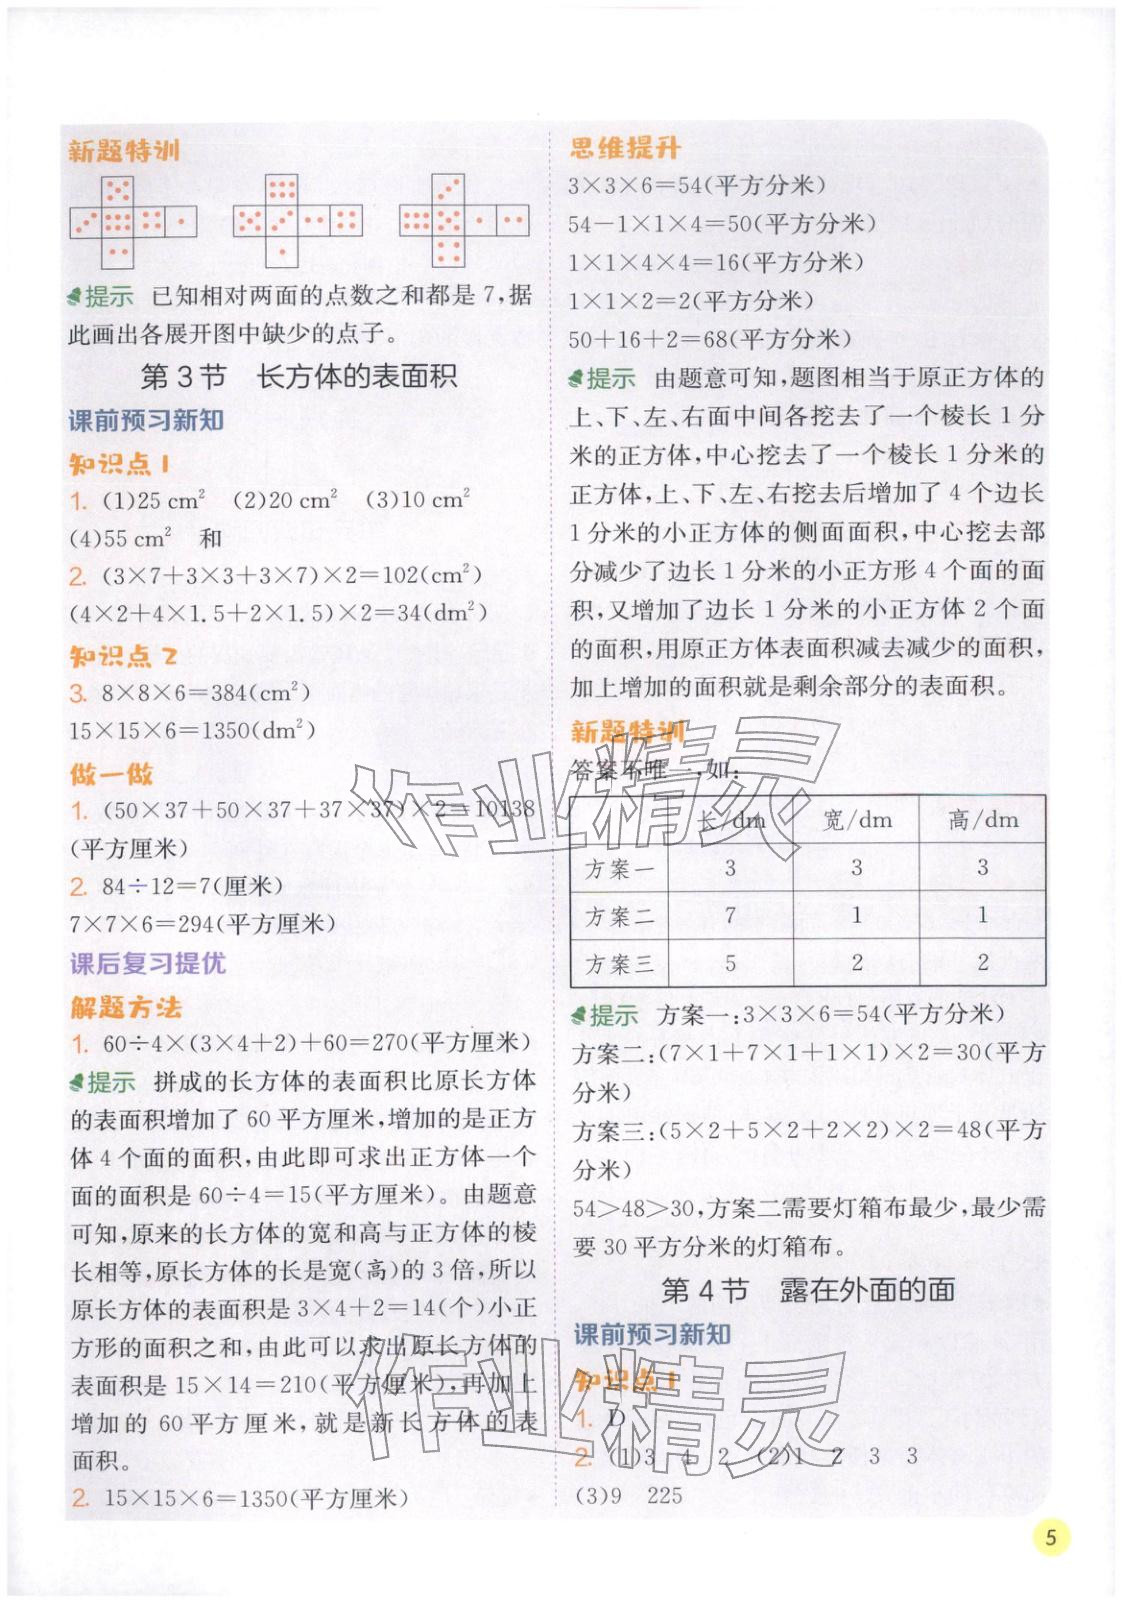 新题特训
提示 已知相对两面的点数之和都是7,据
此画出各展开图中缺少的点子。
第3节 长方体的表面积
课前预习新知
知识点1
1. (1)25 cm² (2)20 cm² (3)10 cm²
(4)55 cm² 和
2. (3×7+3×3+3×7)×2=102(cm²)
(4×2+4×1.5+2×1.5)×2=34(dm²)
知识点2
3. 8×8×6=384(cm²)
15×15×6=1350(dm²)
做一做
1. (50×37+50×37+37×37)×2=10138
(平方厘米)
2. 84÷12=7(厘米)
7×7×6=294(平方厘米)
课后复习提优
解题方法
1. 60÷4×(3×4+2)+60=270(平方厘米)
提示 拼成的长方体的表面积比原长方体
的表面积增加了60平方厘米,增加的是正方
体4个面的面积,由此即可求出正方体一个
面的面积是60÷4=15(平方厘米)。由题意
可知,原来的长方体的宽和高与正方体的棱
长相等,原长方体的长是宽(高)的3倍,所以
原长方体的表面积是3×4+2=14(个)小正
方形的面积之和,由此可以求出原长方体的
表面积是15×14=210(平方厘米),再加上
增加的60平方厘米,就是新长方体的表
面积。
2. 15×15×6=1350(平方厘米)
思维提升
3×3×6=54(平方分米)
54-1×1×4=50(平方分米)
1×1×4×4=16(平方分米)
1×1×2=2(平方分米)
50+16+2=68(平方分米)
提示 由题意可知,题图相当于原正方体的
上、下、左、右面中间各挖去了一个棱长1分
米的正方体,中心挖去了一个棱长1分米的
正方体,上、下、左、右挖去后增加了4个边长
1分米的小正方体的侧面面积,中心挖去部
分减少了边长1分米的小正方形4个面的面
积,又增加了边长1分米的小正方体2个面
的面积,用原正方体表面积减去减少的面积,
加上增加的面积就是剩余部分的表面积。
新题特训
答案不唯一,如:
长/dm 宽/dm 高/dm
方案一 3 3 3
方案二 7 1 1
方案三 5 2 2
提示 方案一:3×3×6=54(平方分米)
方案二:(7×1+7×1+1×1)×2=30(平方
分米)
方案三:(5×2+5×2+2×2)×2=48(平方
分米)
54>48>30,方案二需要灯箱布最少,最少需
要30平方分米的灯箱布。
第4节 露在外面的面
课前预习新知
知识点1
1. D
2. (1)3 4 2 (2)1 2 3 3
(3)9 225
5
作业精灵
作业精灵